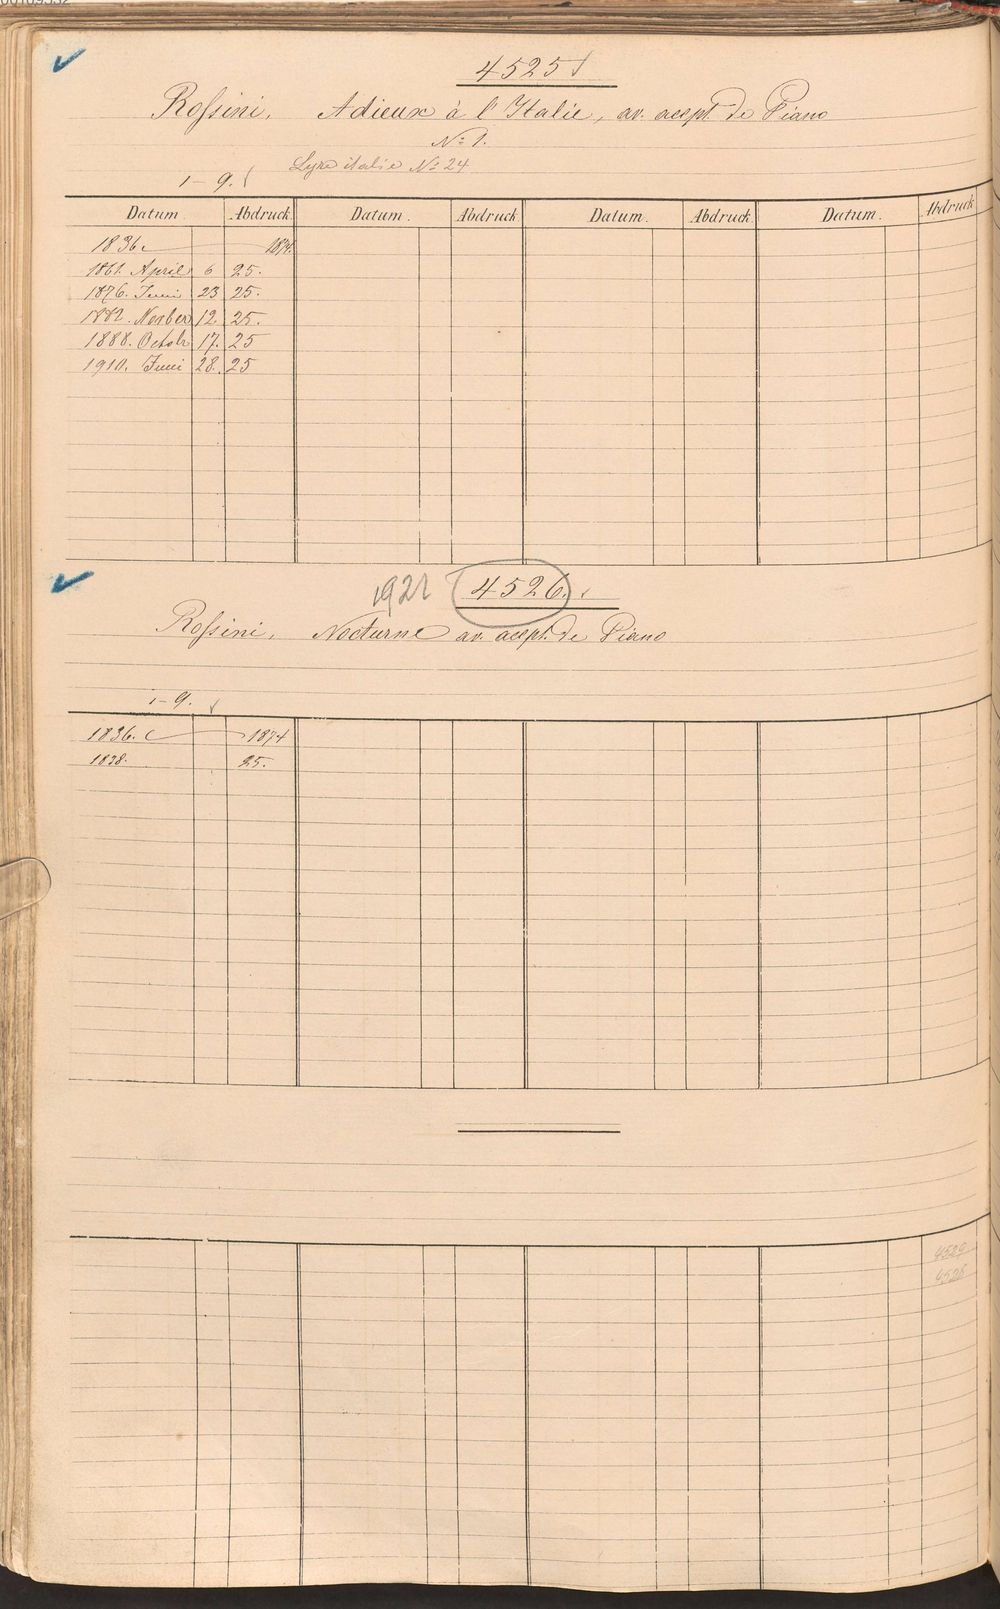 4525
Rossini, Adieux à l'Italie, av. accpt. de Piano
No 1.
Lyre italie No 24
1-9.
Datum. Abdruck. Datum. Abdruck. Datum. Abdruck. Datum. Abdruck
1836. 1874.
1861. April 6 25.
1876. Juni 23 25.
1882. Novber 12. 25.
1888. Octobr 17. 25
1910. Juni 28. 25
1921 4526.
Rossini, Nocturne av. accpt. de Piano
1-9.
1836. 1874
1838. 25.
4526